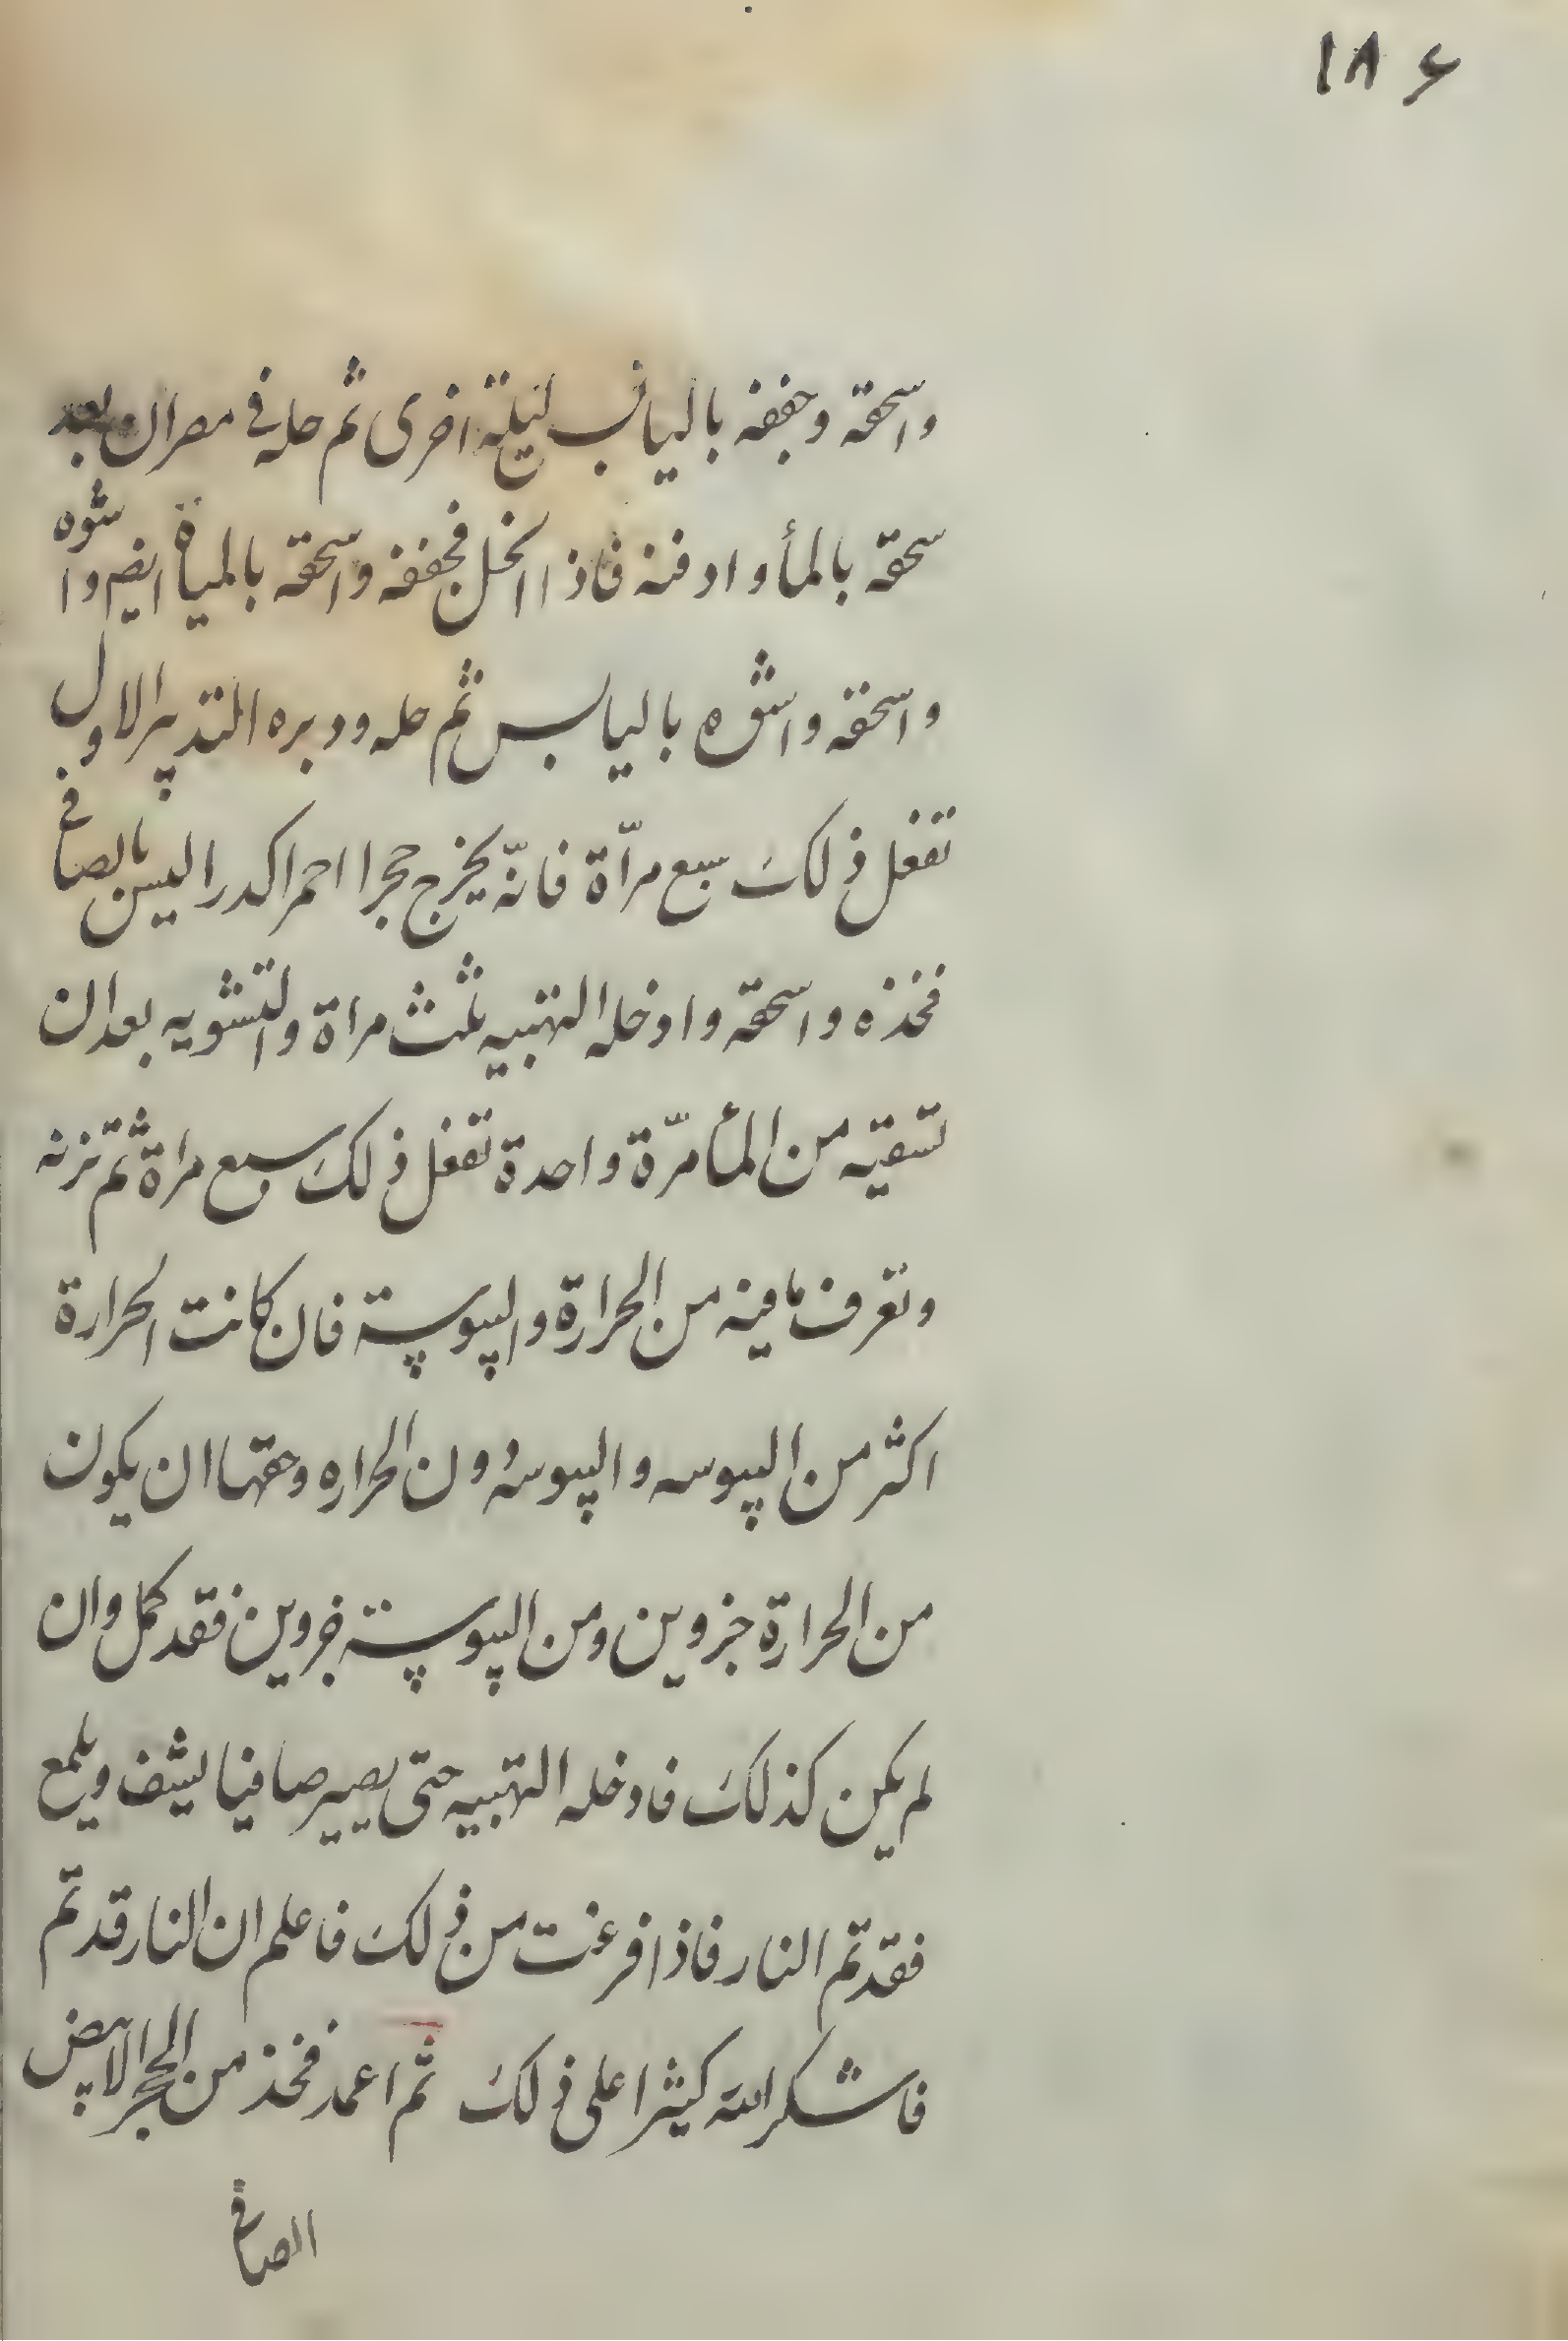 ۱۸۶
واسحقه وجففه باليابس ليلة اخرى ثم حله فى مصران بعد
سحقه بالمأ وادفنه فاذا انحل فجففه واسحقه بالمياة ايضم واشوه
واسحقه واشوه باليابس ثم حله ودبره التدبير الاول
تفعل ذلك سبع مرّاة فانّه يخرج حجرا احمر اكدر اليس بالصافى
فخذه واسحقه وادخله التهبيه ثلث مراة والتشويه بعد ان
تسقيه من المأ مرّة واحدة تفعل ذلك سبع مراة ثم تزنه
وتعرف مافيه من الحرارة واليبوسة فان كانت الحرارة
اكثر من اليبوسه واليبوسه دون الحراره وحقها ان يكون
من الحرارة جزوين ومن اليبوسة جزوين فقد كمل وان
لم يكن كذلك فادخله التهبيه حتى يصير صافيا يشف ويلمع
فقد تم النار فاذا فرغت من ذلك فاعلم ان النار قد تم
فاشكر الله كثيرا على ذلك ثم اعمد فخذ من الحجر الابيض
الصافى